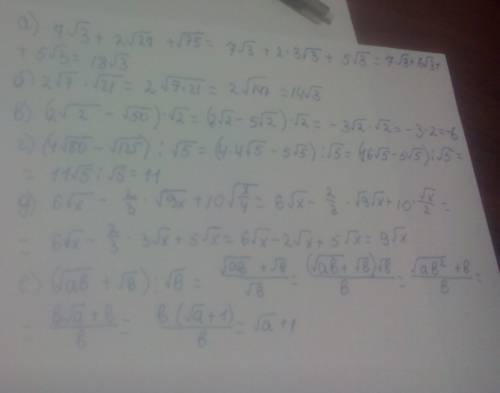 а) 7√3 + 2√27 + √75 = 7√3 + 2·3√3 + 5√3 = 7√3+6√3+
+ 5√3 = 18√3
б) 2√7 · √21 = 2√7·21 = 2√147 = 14√3
в) (2√2 − √50)·√2 = (2√2 − 5√2)·√2 = −3√2·√2 = −3·2=−6
г) (4√80 − √125) : √5 = (4·4√5 − 5√5) : √5 = (16√5−5√5):√5 =
= 11√5 : √5 = 11
д) 6√x − 2/3 · √9x + 10√x/4 = 6√x − 2/3 · √9√x + 10·√x/2 =
= 6√x − 2/3 · 3√x + 5√x = 6√x − 2√x + 5√x = 9√x
е) (√ab + √b) : √b = (√ab + √b)/√b = ((√ab + √b)√b)/b = (√ab² + b)/b =
= (b√a + b)/b = (b(√a + 1))/b = √a + 1